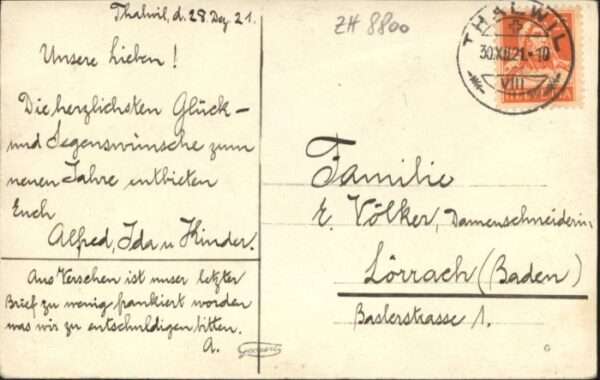 Thalwil, d. 28. Dez 21.
Unsere Lieben!
Die herzlichsten Glück-
und Segenswünsche zum
neuen Jahre entbieten
Euch
Alfred, Ida u Kinder.
Aus Versehen ist unser letzter
Brief zu wenig frankiert worden
was wir zu entschuldigen bitten.
A.
ZH 8800
THALWIL
30.XII.21.-10
VIII
HELVETIA
Familie
E. Völker, Damenschneiderin,
Lörrach (Baden)
Baslerstrasse 1.